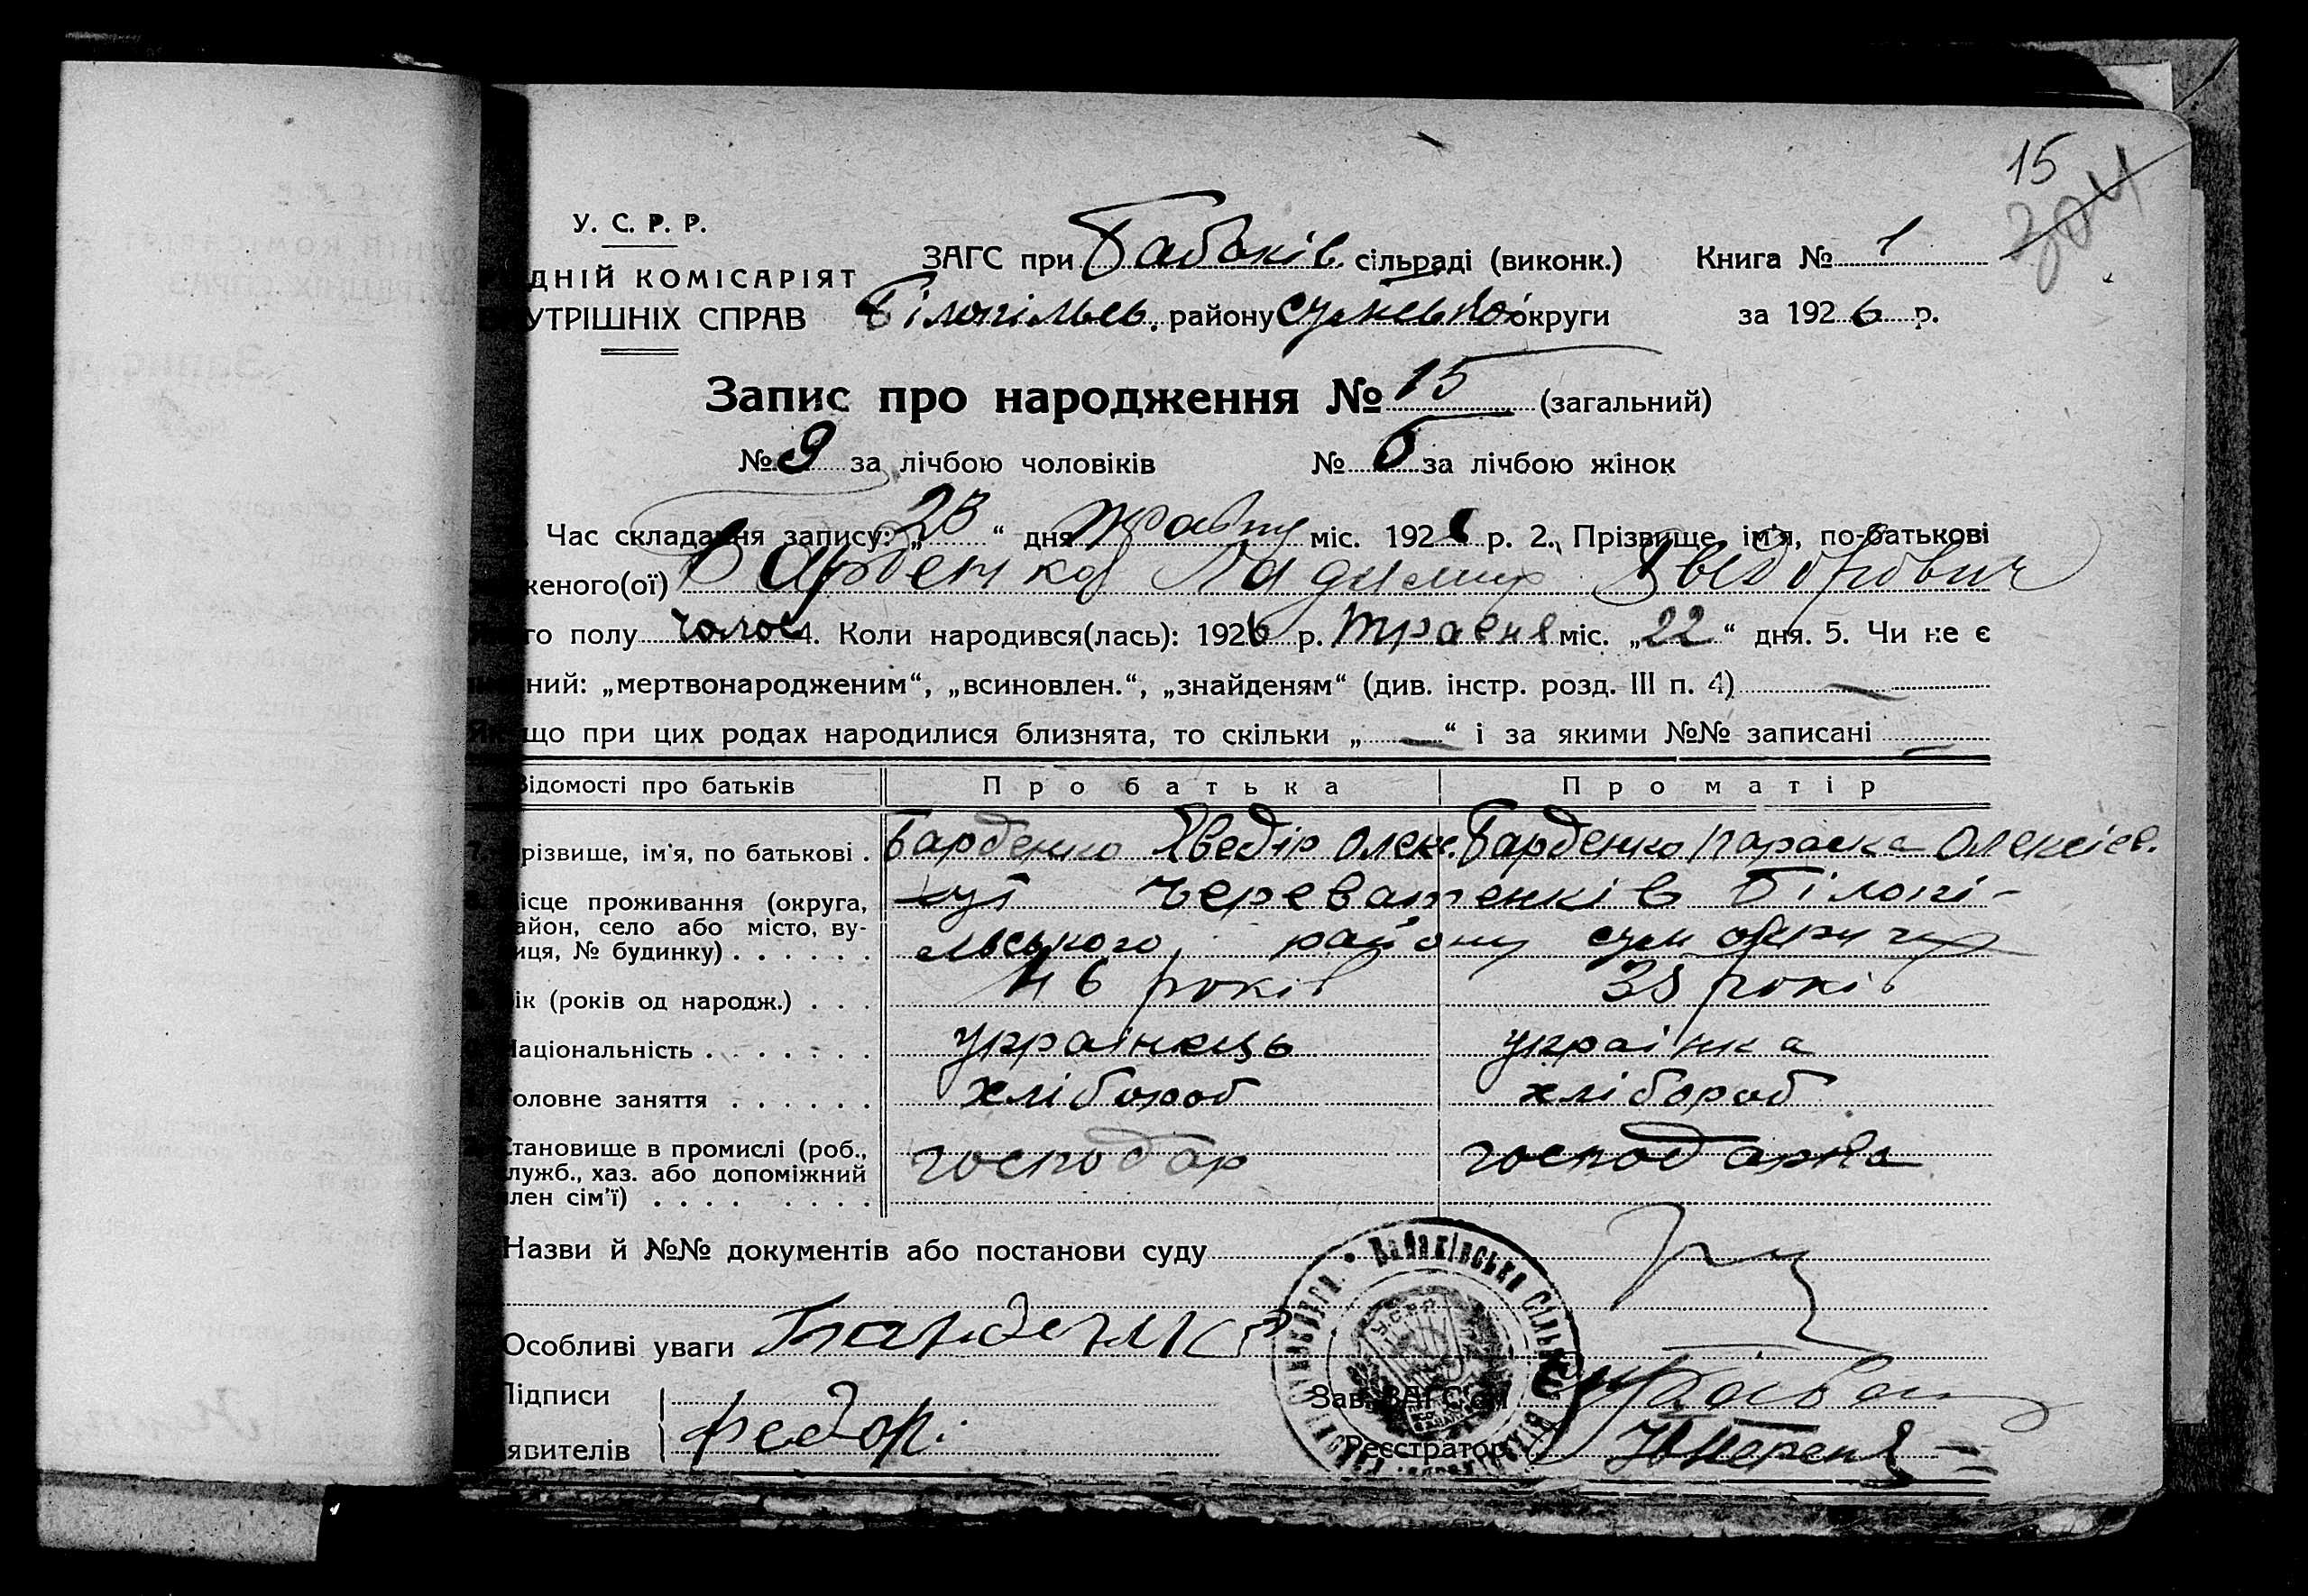 15
304
У. С. Р. Р.
ДНІЙ КОМІСАРІЯТ
УТРІШНІХ СПРАВ
ЗАГС при Бабаків. сільраді (виконк.) Книга № 1
Білопільсь. району Сумської округи за 1926 р.
Запис про народження № 15 (загальний)
№ 9 за лічбою чоловіків № 6 за лічбою жінок
Час складання запису: „23“ дня травня міс. 1926 р. 2. Прізвище, ім'я, по-батькові
женого(ої)
го полу чолов 4. Коли народився(лась): 1926 р. Травня міс. „22“ дня. 5. Чи не є
ний: „мертвонародженим“, „всиновлен.“, „знайденям“ (див. інстр. розд. III п. 4)
що при цих родах народилися близнята, то скільки „—“ і за якими №№ записані —
Відомості про батьків Про батька Про матір
різвище, ім'я, по батькові . Барденко Хведір Олек. Барденко Параска Олексієв.
ісце проживання (округа,
айон, село або місто, ву-
иця, № будинку) . . . . . .
хут Череватенків Білопі-
льського району сум округи
ік (років од народж.) . . . 46 років 38 років
Національність . . . . . . . українець українка
оловне заняття . . . . . . хлібороб хлібороб
тановище в промислі (роб.,
лужб., хаз. або допоміжний
лен сім'ї) . . . . . . . .
господар господарка
Назви й №№ документів або постанови суду
Особливі уваги
Підписи
явителів Федор.
Зав. ЗАГСОМ
Реєстратор
Бабаківська Сіль
У.С.Р.Р.